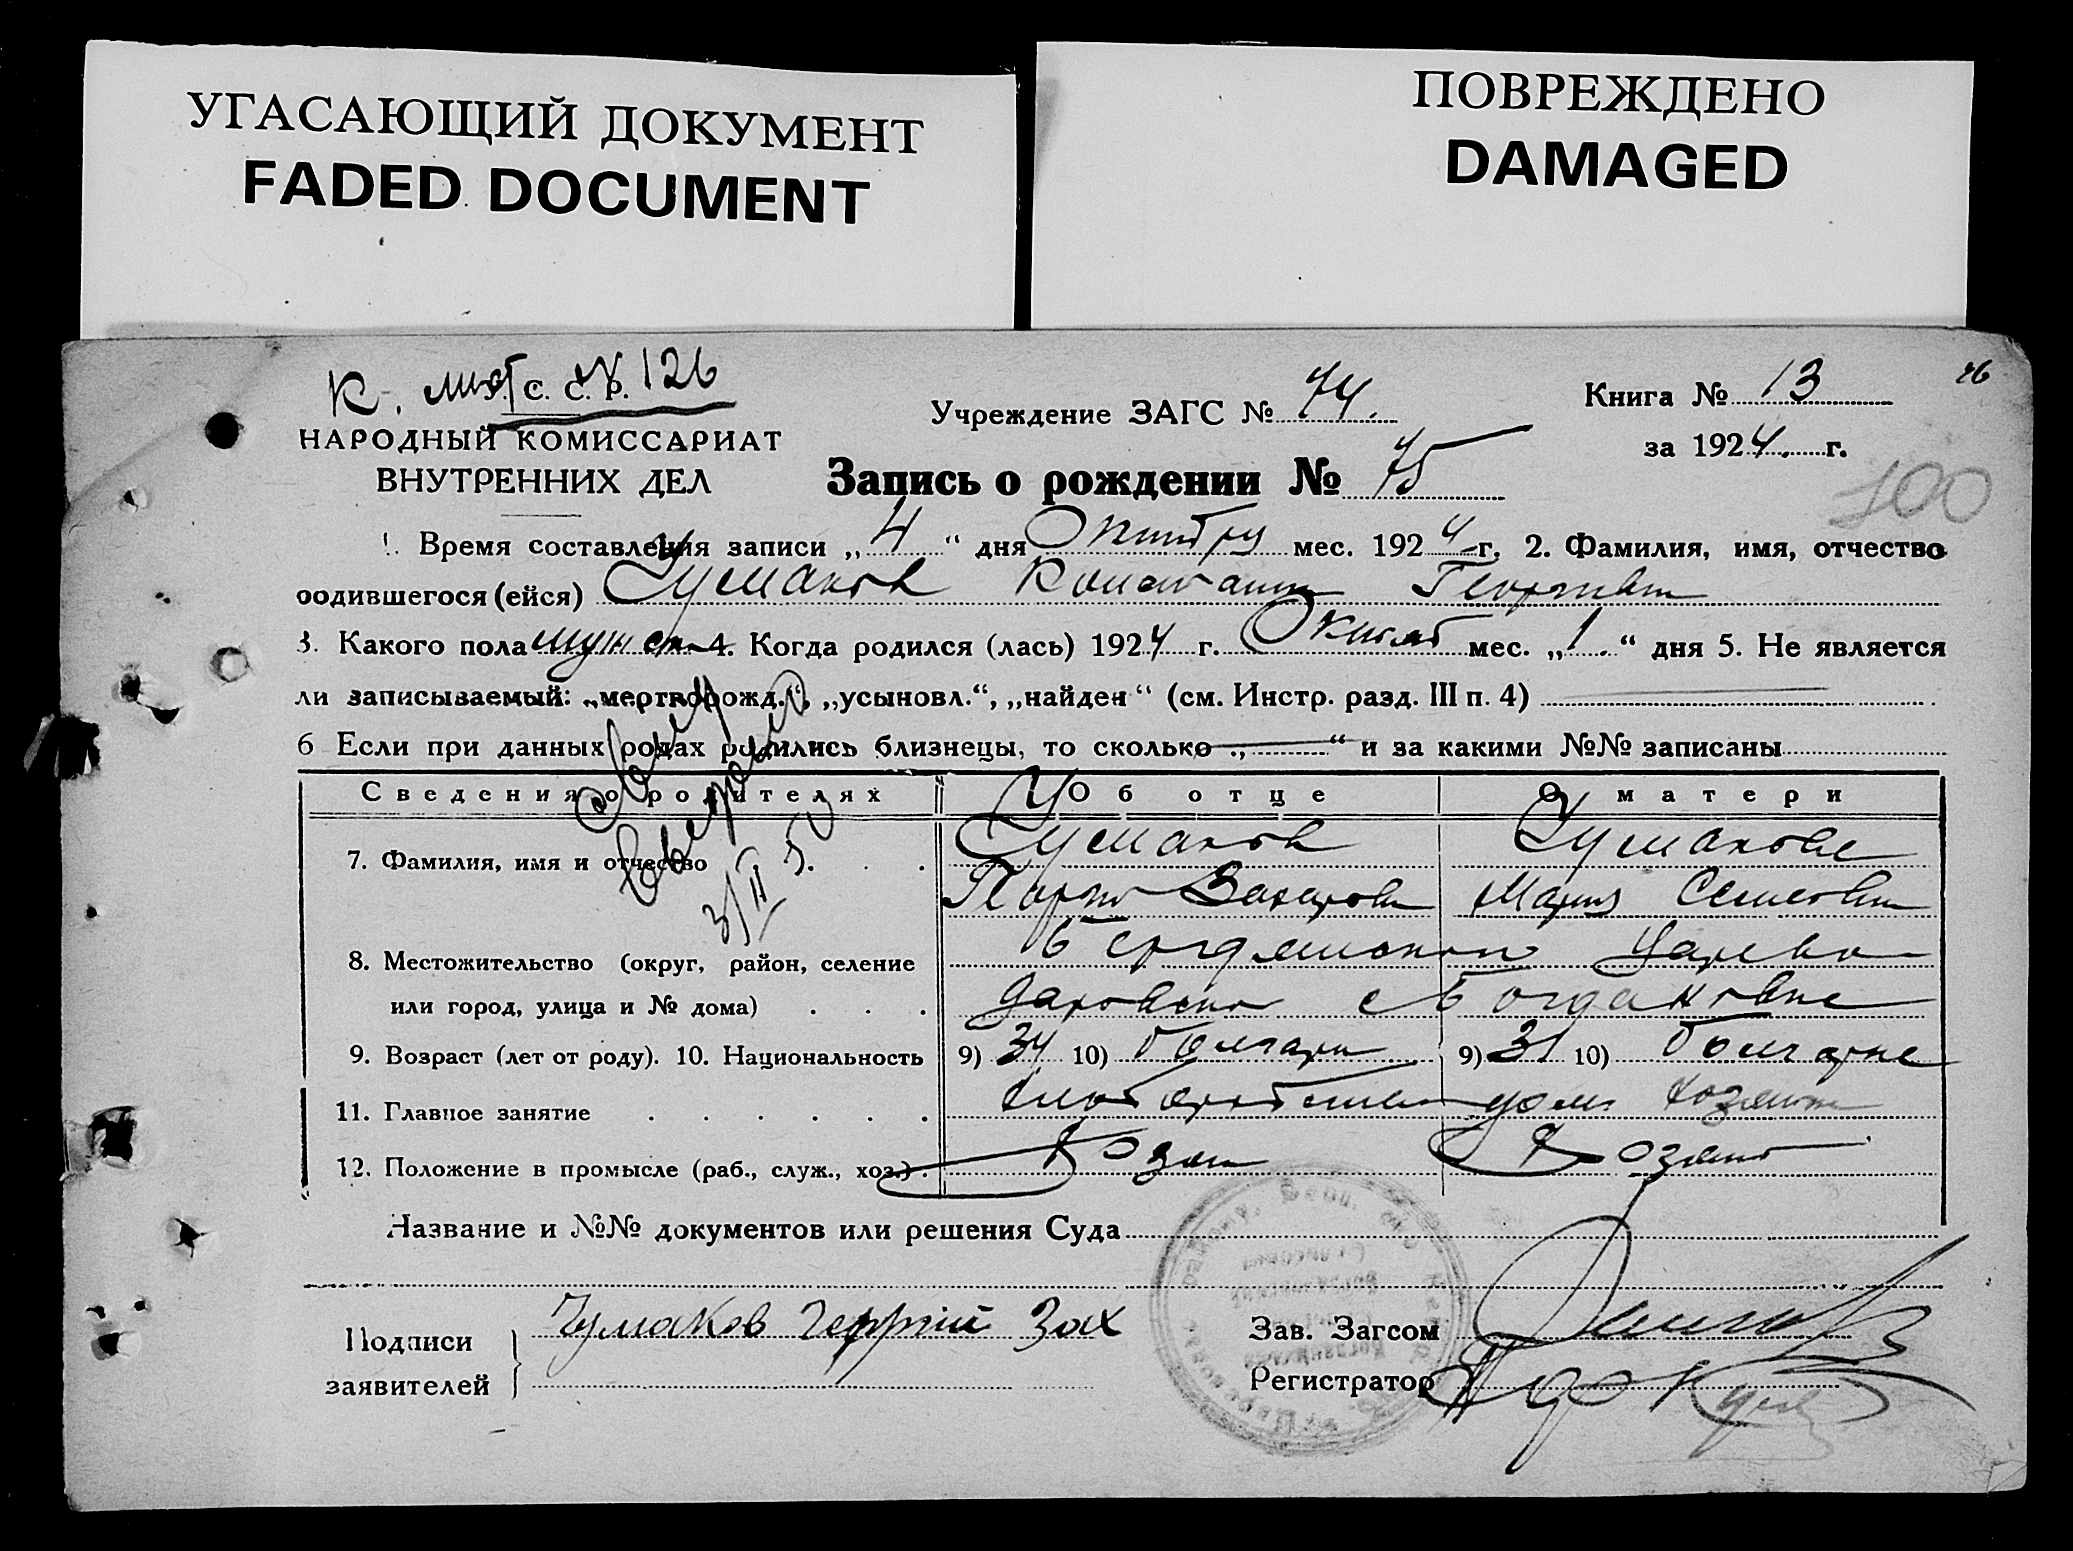 УГАСАЮЩИЙ ДОКУМЕНТ
FADED DOCUMENT
ПОВРЕЖДЕНО
DAMAGED
К. лист № 126
С. С. Р.
НАРОДНЫЙ КОМИССАРИАТ
ВНУТРЕННИХ ДЕЛ
Учреждение ЗАГС №
Книга № 13
за 1924 г.
46
100
Запись о рождении № 45
1. Время составления записи „4“ дня Октября мес. 1924 г. 2. Фамилия, имя, отчество
родившегося (ейся) Чумаков Константин Георгиев
3. Какого пола мужск 4. Когда родился (лась) 1924 г. Октяб мес. „1.“ дня 5. Не является
ли записываемый: „мертворожд.“, „усыновл.“, „найден“ (см. Инстр. разд. III п. 4)
6 Если при данных родах родились близнецы, то сколько „—“ и за какими №№ записаны
Сведения о родителях Об отце О матери
7. Фамилия, имя и отчество Чумаков Чумакова
Захаров Мария Семеовн
8. Местожительство (округ, район, селение Бердянский Царево
или город, улица и № дома) даровско с Богдановка
9. Возраст (лет от роду). 10. Национальность 9) 34 10) болгарин 9) 31 10) болгарка
11. Главное занятие дом хозяйка
12. Положение в промысле (раб., служ., хоз.) Хозяин Хозяйка
Название и №№ документов или решения Суда
Подписи
заявителей
Чумаков Георгий Зах
Зав. Загсом
Регистратор